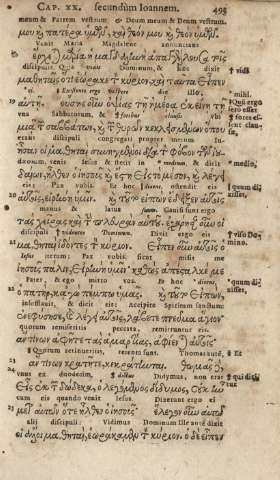 CAP. XX. secundùm Ioannem. 495
meum & Patrem vestrum & Deum meum & Deum vestrum.
μου κỳ πατέρα ὑμῶν, καὶ θεόν μου κỳ θεὸν ὑμῶν.
Venit Maria Magdalene annuncians
ἔρχεται μαρία ἡ μαγδαληνὴ ἀπαγγέλλουσα τοῖς
discipulis: Quia vidit Dominum, & hæc dixit
μαθηταῖς ὅτι ἑώρακε τ κύριον, καὶ ταῦτα εἶπεν
ei. die illo,
αὐτῇ. οὔσης οὖν ὀψίας τῇ ἡμέρᾳ ἐκείνῃ τῇ
vna Sabbatorum, &
μιᾷ τ σαββάτων, κỳ τ θυρῶν κεκλεισμένων ὅπου
erant discipuli congregati propter metum
ἦσαν οἱ μαθηταὶ συνηγμένοι διὰ τ φόβον τ ἰου-
dæorum, venit Iesus & stetit in medium, & dicit
δαίων, ἦλθεν ὁ ἰησοῦς κỳ ἔστη εἰς τὸ μέσον, κỳ λέγει
eis: Pax vobis. Et hoc dicens, ostendit eis
αὐτοῖς, εἰρήνη ὑμῖν. κỳ τῦτο εἰπὼν ἔδειξεν αὐτοῖς
manus & latus suum. Gauisi sunt ergo
τὰς χεῖρας καὶ τ πλευρὰν αὐτοῦ. ἐχάρησαν οὖν οἱ
discipuli videntes Dominum. Dixit ergo eis
μαθηταὶ ἰδόντες τ κύριον. Εἶπεν οὖν αὐτοῖς ὁ
Iesus iterum: Pax vobis. sicut misit me
ἰησοῦς πάλιν, Εἰρήνη ὑμῖν· καθὼς ἀπέσταλκέ με
Pater, & ego mitto vos. Et hoc
ὁ πατὴρ, κἀγὼ πέμπω ὑμᾶς. κỳ τῦτο εἰπὼν,
insufflauit, & dicit eis: Accipite Spiritum sanctum:
ἐνεφύσησε, κỳ λέγει αὐτοῖς, λάβετε πνεῦμα ἅγιον·
quorum remiseritis peccata, remittuntur eis:
ἄν τινων ἀφῆτε τὰς ἁμαρτίας, ἀφίεν) αὐτοῖς·
Quorum retinueritis, retenta sunt. Thomas autem,
ἄν τινων κρατῆτε, κεκράτηνται. θωμᾶς δὲ,
vnus ex duodecim, dictus Didymus, non erat
εἷς ἐκ τ δώδεκα, ὁ λεγόμενος δίδυμος, οὐκ ἦν
cum eis quando venit Iesus. Dixerunt ergo ei
μετ᾽ αὐτῶν ὅτε ἦλθεν ὁ ἰησοῦς. ἔλεγον οὖν αὐτῷ
alij discipuli: Vidimus Dominum. Ille autē dixit
οἱ ἄλλοι μαθηταί, ἑωράκαμεν τ κύριον. ὁ δὲ εἶπεν